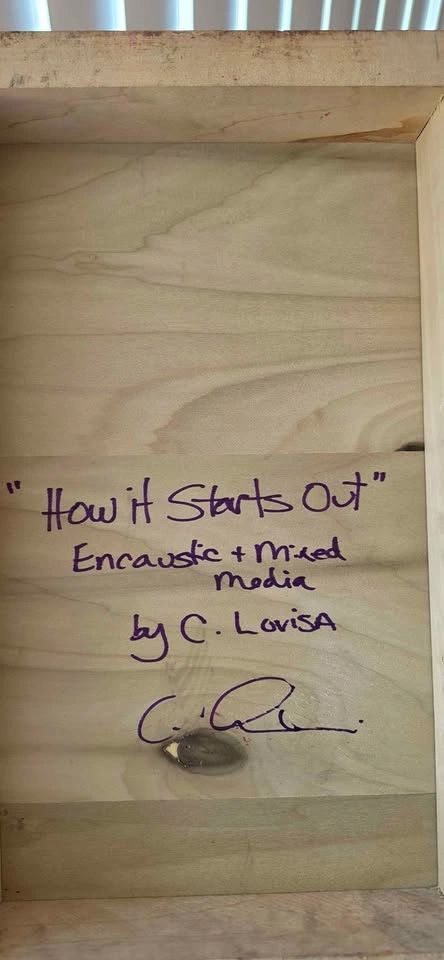 "How it Starts Out"
Encaustic + Mixed
Media
by C. LovisA
C.